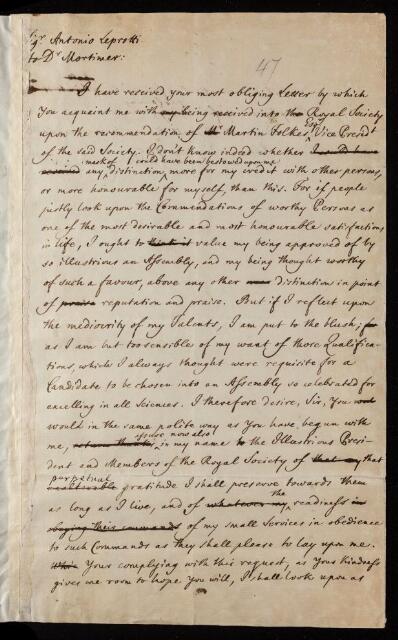 Sigr Antonio Leprotti
to Dr Mortimer:
47
I have received your most obliging Letter by which
You acquaint me with my being received into the Royal Society
upon the recommendation of Mr Martin Folkes, Esqr Vice Presidt
of the said Society. I don't know indeed whether I could
mark of I could have been bestowed upon me
received any distinction more for my credit with other persons,
or more honourable for myself, than this. For if people
justly look upon the Commendations of worthy Persons as
one of the most desirable and most honourable satisfactions
in life, I ought to think it value my being approved of by
so illustrious an Assembly, and my being thought worthy
of such a favour, above any other distinction in point
of praise reputation and praise. But if I reflect upon
the mediocrity of my Talents, I am put to the blush; for
as I am but too sensible of my want of those Qualifica-
tions, which I always thought were requisite for a
Candidate to be chosen into an Assembly so celebrated for
excelling in all Sciences. I therefore desire, Sir, You
would in the same polite way as You have begun with
assure now also
me, return thanks in my name to the Illustrious Presi-
dent and Members of the Royal Society of that my that
perpetual
gratitude I shall preserve towards them
as long as I live, and of whatever my the readiness in
obeying their commands of my small Services in obedience
to such Commands as they shall please to lay upon me.
Your complying with this request, as Your Kindness
gives me room to hope You will, I shall look upon as